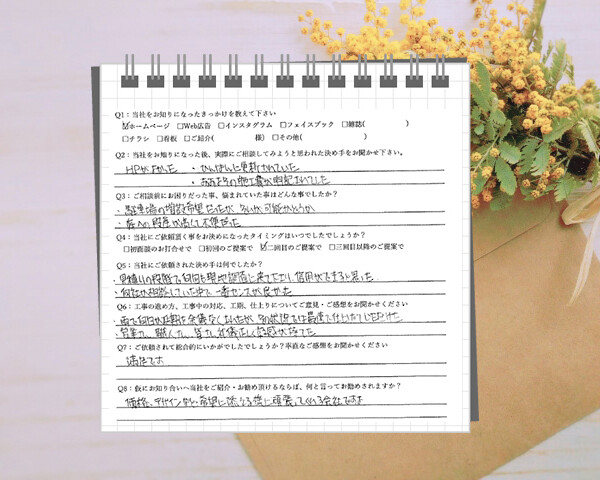 Q1：当社をお知りになったきっかけを教えて下さい
☑ホームページ □Web広告 □インスタグラム □フェイスブック □雑誌( )
□チラシ □看板 □ご紹介( 様) □その他( )
Q2：当社をお知りになった後、実際にご相談してみようと思われた決め手をお聞かせ下さい。
HPがよかった ・ひんぱんに更新されていた
・おおよその施工費が明記されてした
Q3：ご相談前にお困りだった事、悩まれていた事はどんな事でしたか？
・駐車場の増設希望だったが、
・段差が高くて不便だった
Q4：当社にご依頼頂く事をお決めになったタイミングはいつでしたでしょうか？
□初面談のお打合せで □初回のご提案で ☑二回目のご提案で □三回目以降のご提案で
Q5：当社にご依頼された決め手は何でしたか？
・見積りの段階で何回も現地確認に来て下さり、信用ができると思った
・何社か相談していた中で一番センスが良かった
Q6：工事の進め方、工事中の対応、工期、仕上りについてご意見・ご感想をお聞かせください
・雨で何日か延期を余儀なくされたが、
・営業さん、職人さん、皆さん礼儀正しく好感が持てた
Q7：ご依頼されて総合的にいかがでしたでしょうか？率直なご感想をお聞かせください
満足です
Q8：仮にお知り合いへ当社をご紹介・お勧め頂けるならば、何と言ってお勧めされますか？
価格、デザインなど、希望に添える様に頑張ってくれる会社ですよ